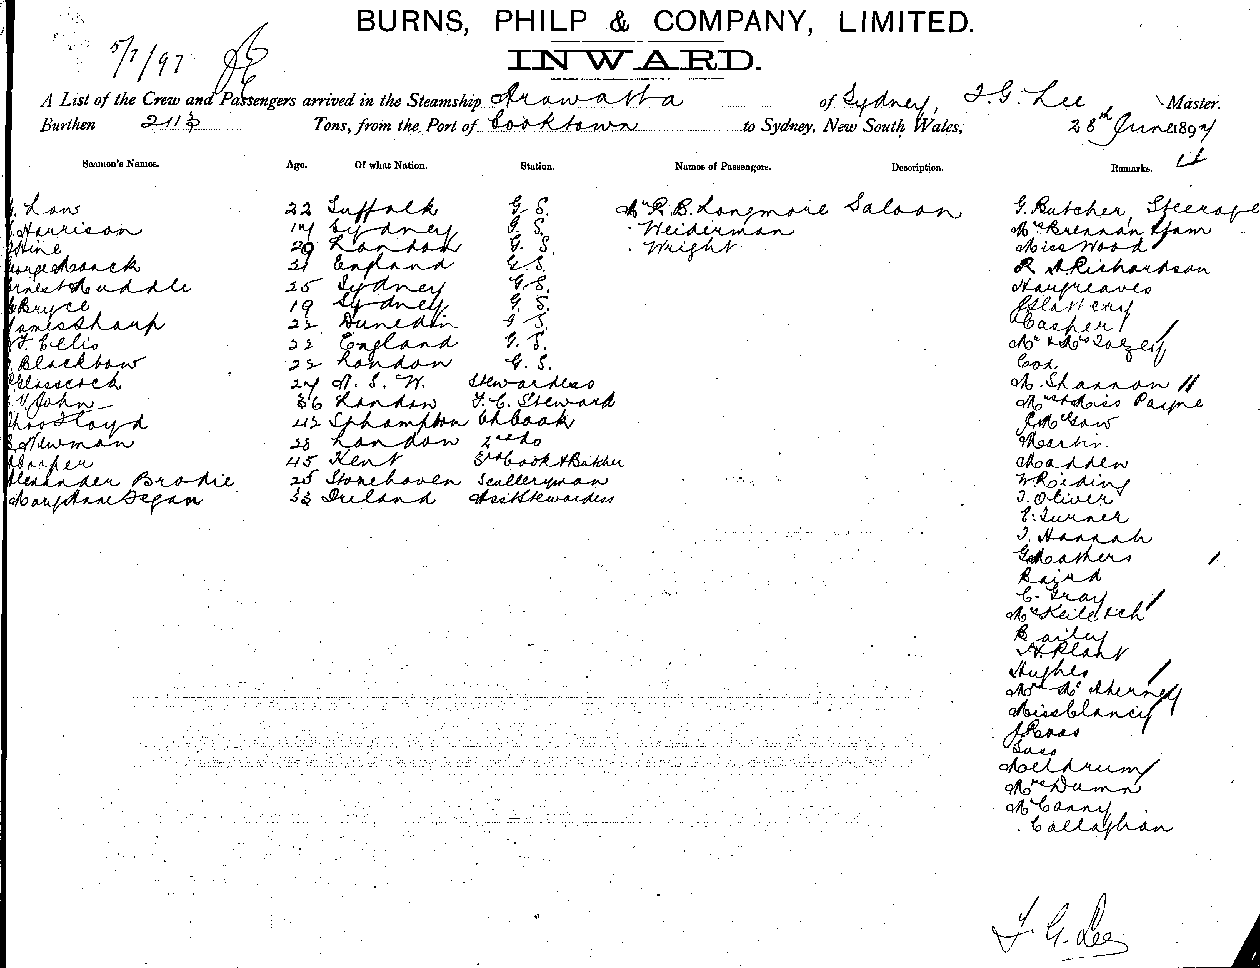 BURNS, PHILP & COMPANY, LIMITED.
5/7/97
INWARD.
A List of the Crew and Passengers arrived in the Steamship Arawatta of Sydney, T. G. Lee, Master.
Burthen 2113 Tons, from the Port of Cooktown to Sydney, New South Wales, 28th June 1897
Seamen's Names. Age. Of what Nation. Station. Names of Passengers. Description. Remarks.
Law 22 Suffolk G. S. Mr R. B. Longmore Saloon G. Butcher, Steerage
Harrison 19 Sydney G. S. Weiderman Mrs Brennan & fam
Hine 29 London G. S. Wright Miss Wood
George Monck 21 England G. S. R A Richardson
Ernest Huddle 25 Sydney G. S. Hargreaves
Bryce 19 Sydney G. S. J Slattery
James Sharp 22 Dunedin G. S. Casper
Ellis 22 England G. S. Mr & Mrs
Blackbow 22 London G. S. Cox
Glasscock 24 N. S. W. Stewardess M. Shannon
John 36 London F. C. Steward Mrs & Miss Payne
Thos Lloyd 42 Sphampton Ch Cook J McGaw
Newman 28 London 2nd do Martin
Cooper 45 Kent 3rd Cook & Butcher Madden
Alexander Brodie 25 Stonehaven Sculleryman W Reiding
Mary Anne Fegan 33 Ireland Asst Stewardess T. Oliver
E. Turner
T. Hannah
G Mathers
Baird
C. Gray
Bailey
A Plant
Hughes
Miss Clancy
J Ross
Meldrum
Mrs Dumn
McCanny
Callaghan
T. G. Lee